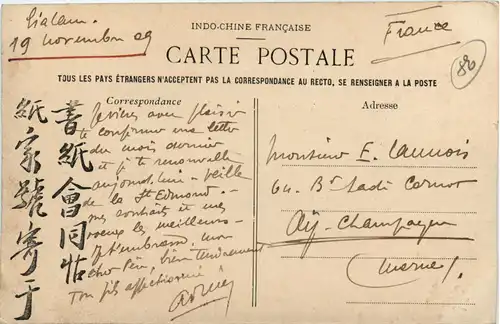 Gialam.
19 novembre 09
INDO-CHINE FRANÇAISE
France
CARTE POSTALE
80
TOUS LES PAYS ÉTRANGERS N'ACCEPTENT PAS LA CORRESPONDANCE AU RECTO, SE RENSEIGNER A LA POSTE
Correspondance
avec plaisir
te confirme ma lettre
du mois dernier
et je te renouvelle
aujourd'hui - veille
de la St Edmond. -
mes souhaits et mes
voeux les meilleurs -
Je t'embrasse, mon
cher Père, bien tendrement
Ton fils affectionné
書紙會同帖
紙家號寄于
Adresse
Monsieur E. Launois
64. Bd Sadi Carnot
Aÿ-Champagne
(Marne).